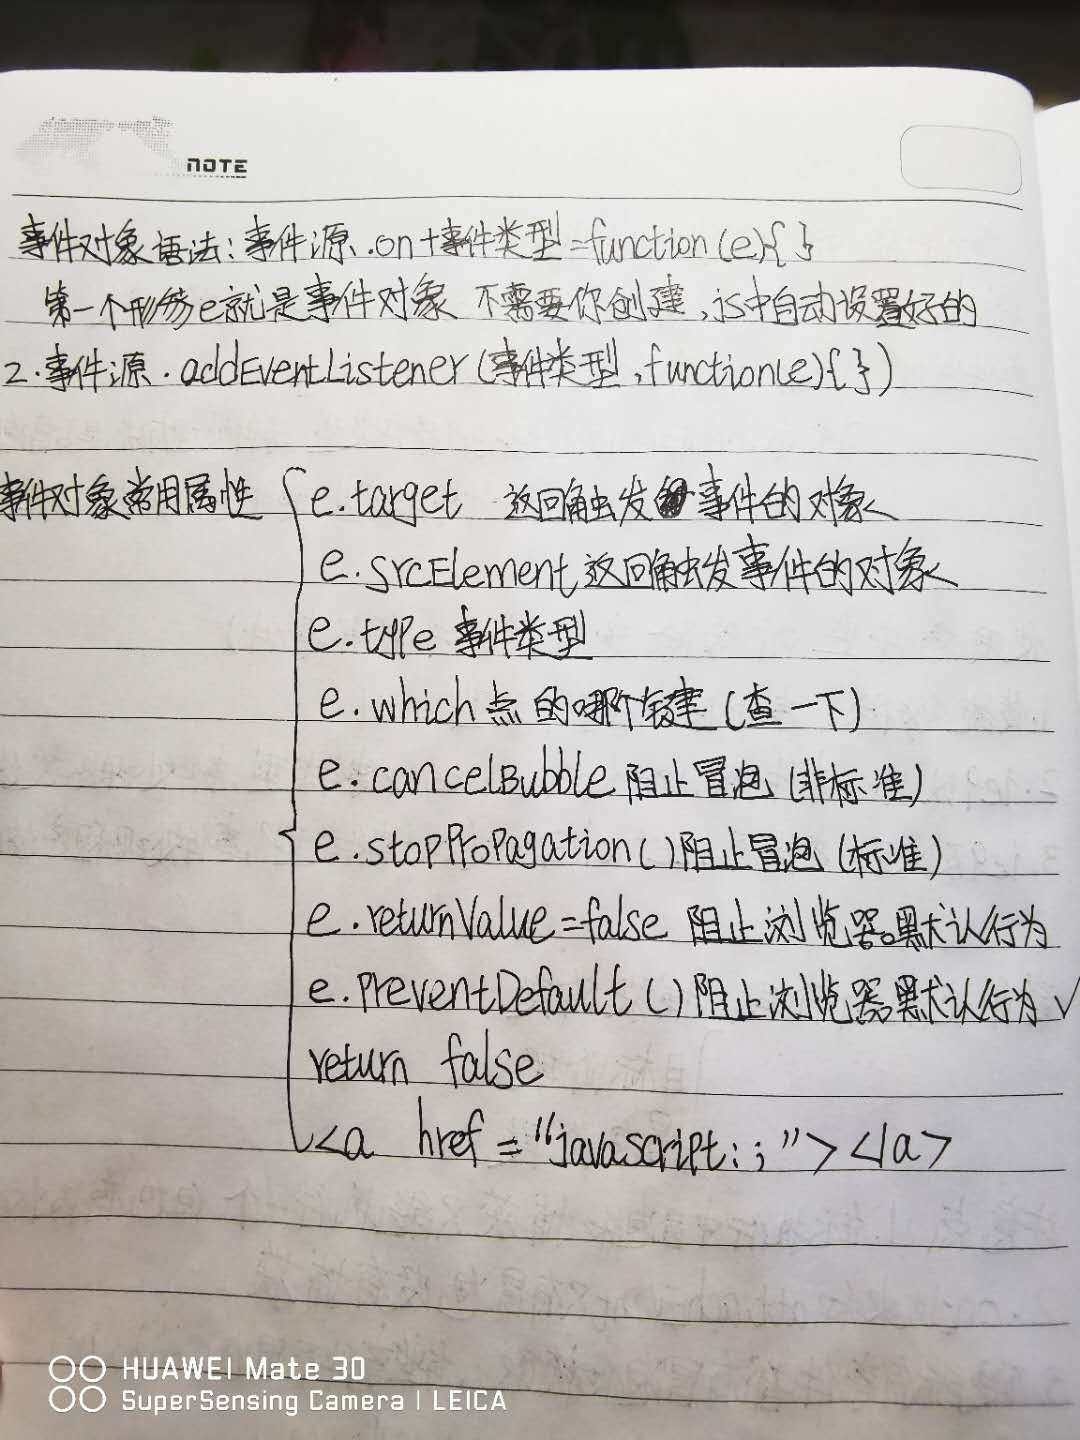 NOTE
事件对象语法:事件源.on+事件类型=function(e){}
第一个形参e就是事件对象 不需要你创建,js中自动设置好的
2.事件源.addEventListener(事件类型,function(e){})
事件对象常用属性 e.target 返回触发事件的对象
e.srcElement 返回触发事件的对象
e.type 事件类型
e.which 点的哪个键(查一下)
e.cancelBubble 阻止冒泡(非标准)
e.stopPropagation()阻止冒泡(标准)
e.returnValue=false 阻止浏览器默认行为
e.preventDefault()阻止浏览器默认行为√
return false
<a href="javascript:;"></a>
HUAWEI Mate 30
SuperSensing Camera | LEICA